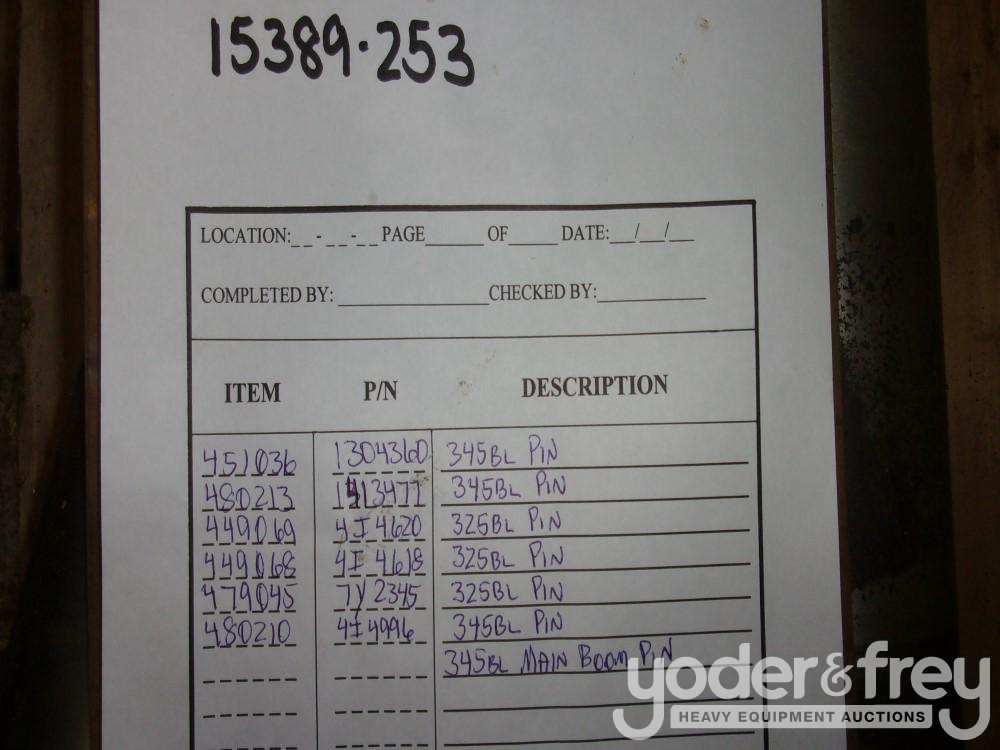 15389.253
LOCATION:_ _ - _ _ - _ _ PAGE______ OF_____ DATE:__/__/__
COMPLETED BY: ________________CHECKED BY:____________
ITEM P/N DESCRIPTION
451036 1304360 345BL PIN
480213 1413477 345BL PIN
449069 4I4620 325BL PIN
449068 4I4618 325BL PIN
479045 7Y2345 325BL PIN
480210 4I4996 345BL PIN
345BL MAIN BOOM PIN
yoder&frey
HEAVY EQUIPMENT AUCTIONS